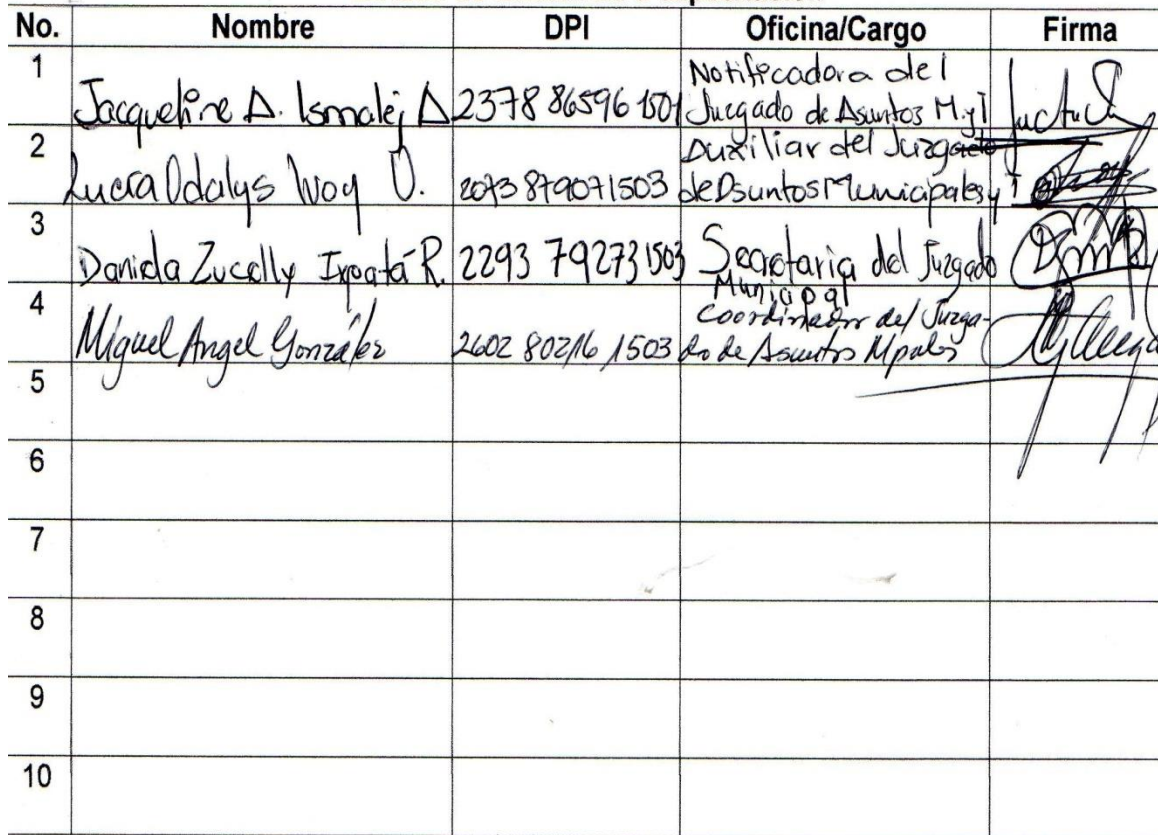 No. Nombre DPI Oficina/Cargo Firma
1 Jacqueline A. Ismalej A 2378 86596 1501 Notificadora del
Juzgado de Asuntos M. y T
2 Lucía Odalys Woy O. 2073 879071503 Auxiliar del Juzgado
de Asuntos Municipales y T
3 Daniela Zucelly Ixpatá R. 2293 79273 1503 Secretaria del Juzgado
Municipal
4 Miguel Angel González 2602 80216 1503 Coordinador del Juzga-
do de Asuntos Mpales
5
6
7
8
9
10